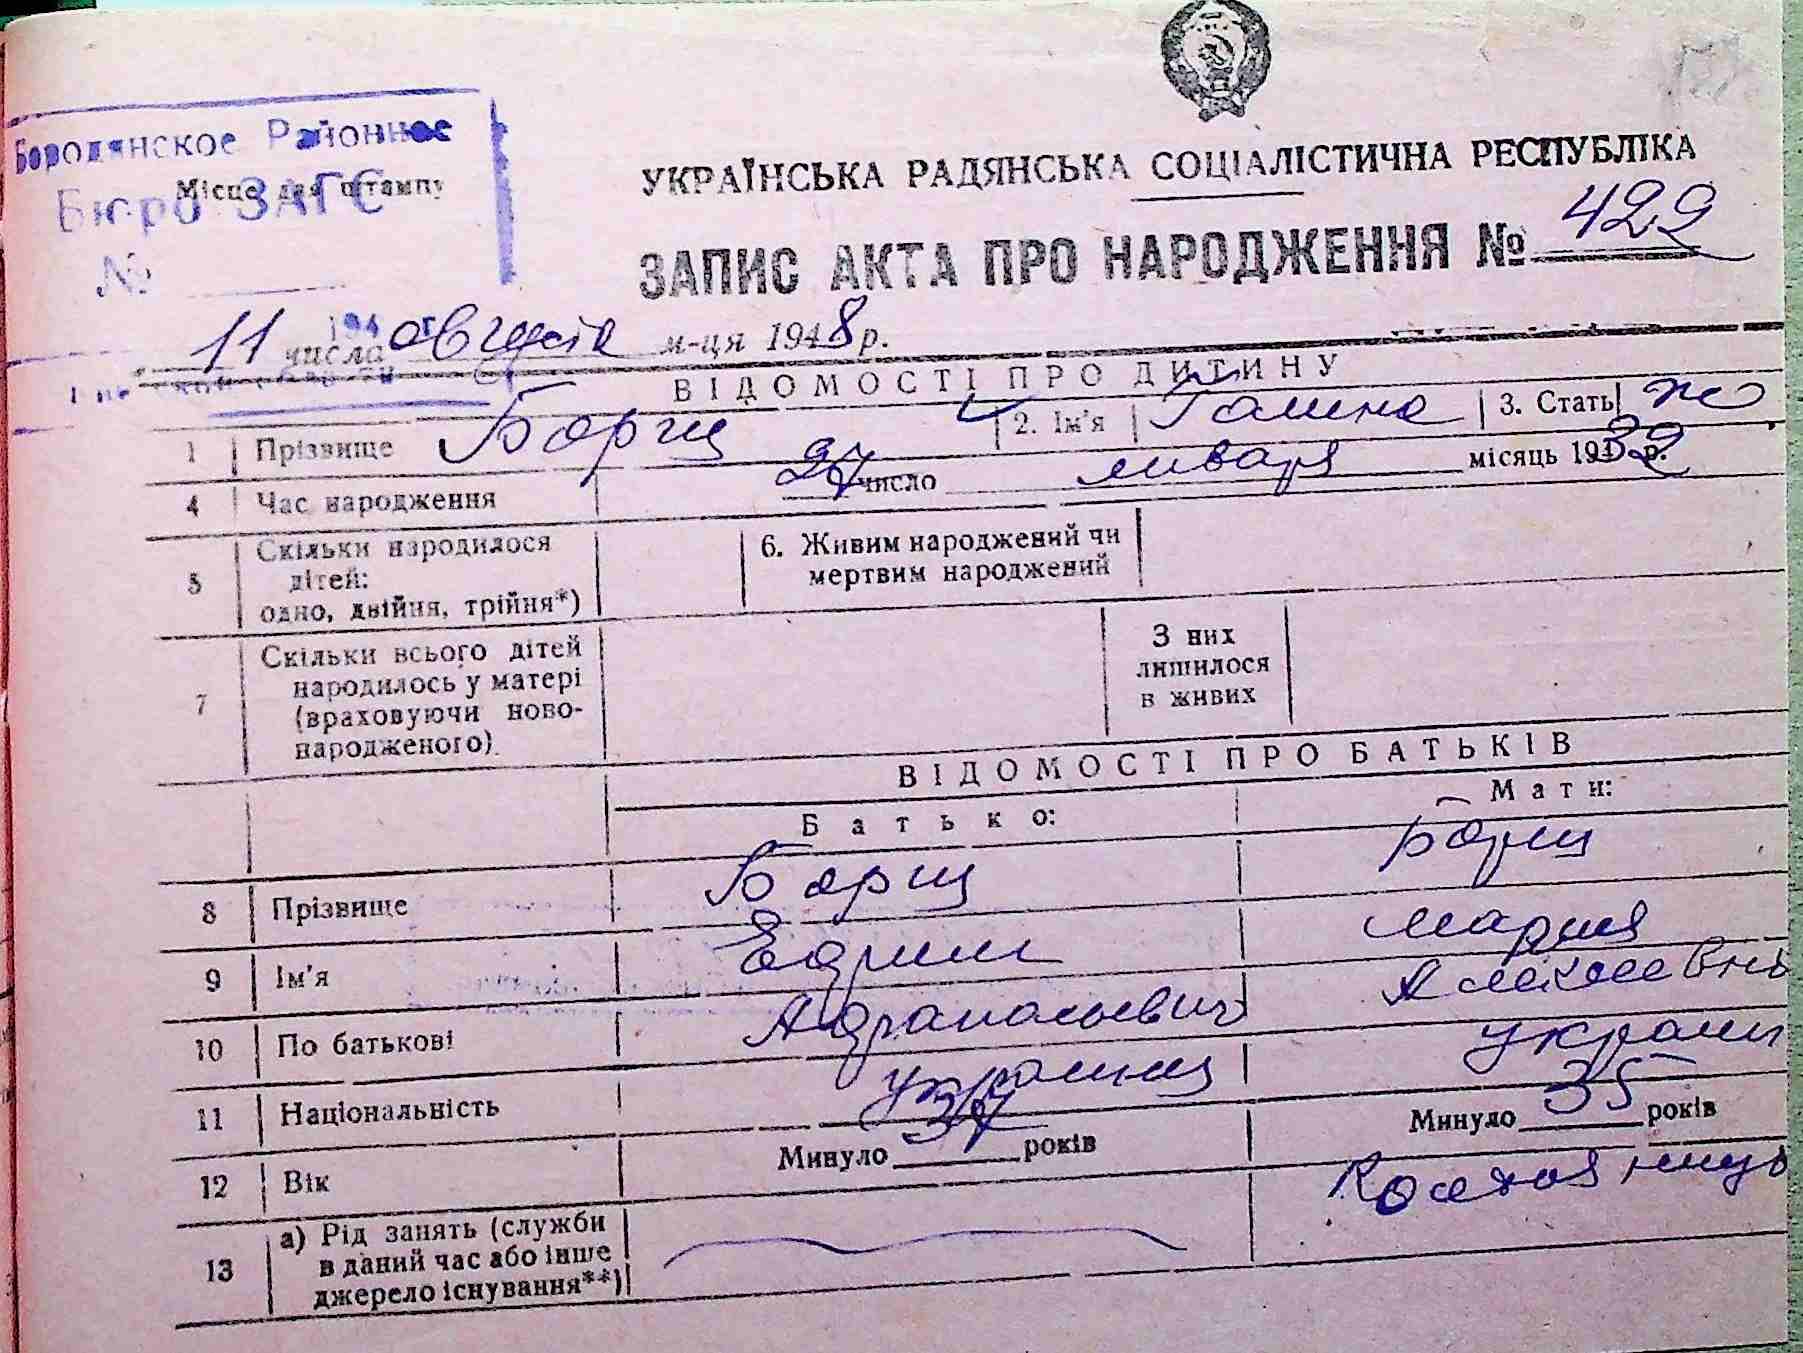 Бородянское Районное
Бюро ЗАГС
Місце для штампу
№
УКРАЇНСЬКА РАДЯНСЬКА СОЦІАЛІСТИЧНА РЕСПУБЛІКА
ЗАПИС АКТА ПРО НАРОДЖЕННЯ № 422
11 числа августа м-ця 1948 р.
ВІДОМОСТІ ПРО ДИТИНУ
1 Прізвище Борщ 2. Ім'я Галина 3. Стать ж
4 Час народження 27 число января місяць 1932 р.
5 Скільки народилося
дітей:
одно, двійня, трійня*)
6. Живим народжений чи
мертвим народжений
7 Скільки всього дітей
народилось у матері
(враховуючи ново-
народженого).
З них
лишилося
в живих
ВІДОМОСТІ ПРО БАТЬКІВ
Батько: Мати:
8 Прізвище Борщ Борщ
9 Ім'я Ефим Мария
10 По батькові Афанасьевич
11 Національність украинец украин
12 Вік Минуло 37 років Минуло 35 років
13 а) Рід занять (служби
в даний час або інше
джерело існування**)